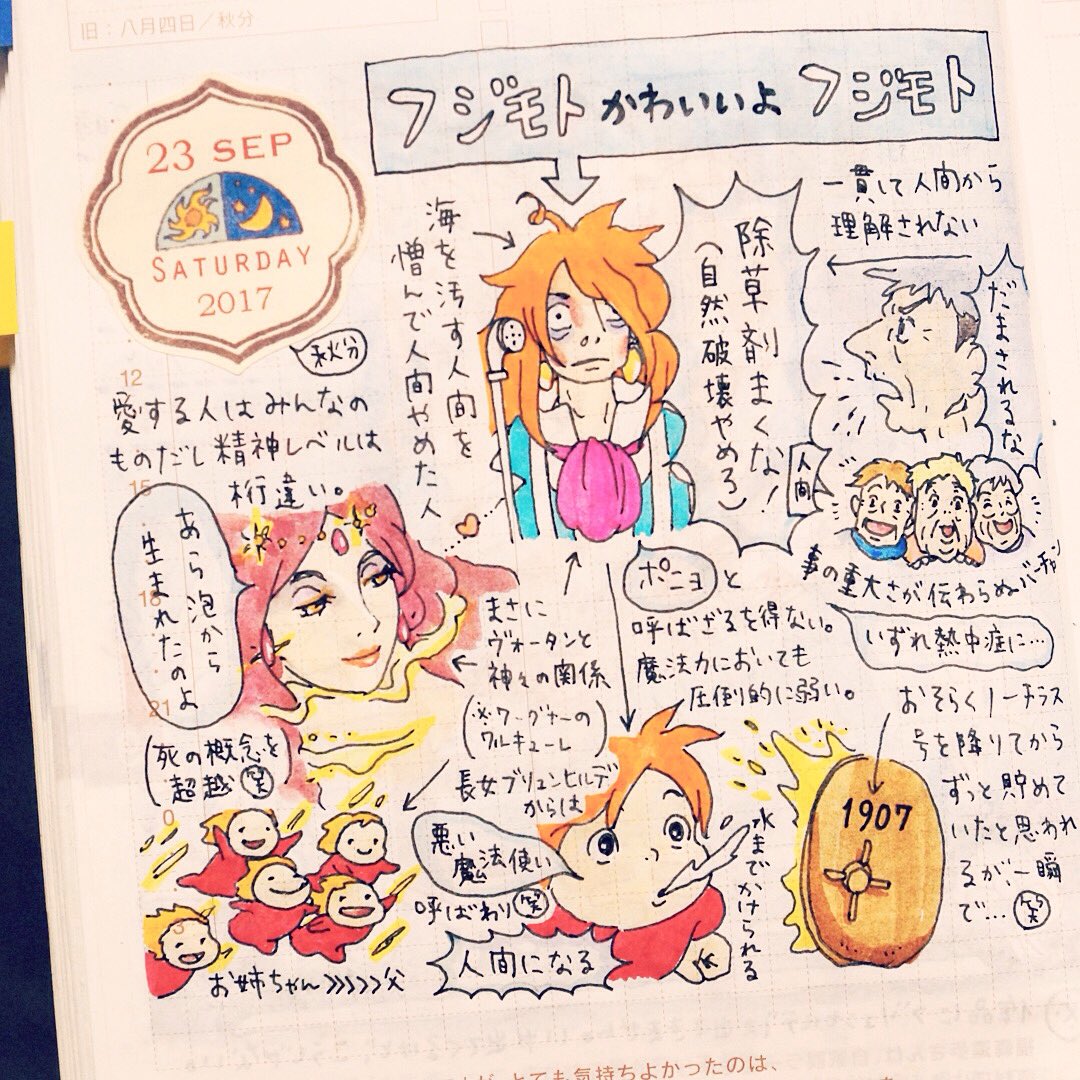 旧:八月四日/秋分
フジモトかわいいよフジモト
23 SEP
SATURDAY
2017
秋分
海を汚す人間を
憎んで人間やめた人
除草剤まくな!
(自然破壊やめろ)
一貫して人間から
理解されない
だまされるな
人間
事の重大さが伝わらぬバーチャン
いずれ熱中症に…
12
15
18
21
0
愛する人はみんなの
ものだし精神レベルは
桁違い。
あら泡から
生まれたのよ
(死の概念を
超越笑)
まさに
ヴォータンと
神々の関係
(※ワーグナーの
ワルキューレ)
長女ブリュンヒルデ
からは
ポニョと
呼ばざるを得ない。
魔法力においても
圧倒的に弱い。
悪い
魔法使い
呼ばわり笑
人間になる
水までかけられる
お姉ちゃん>>>>>父
おそらくノーチラス
号を降りてから
ずっと貯めて
いたと思われ
るが、一瞬
で…笑
1907
とても気持ちよかったのは、